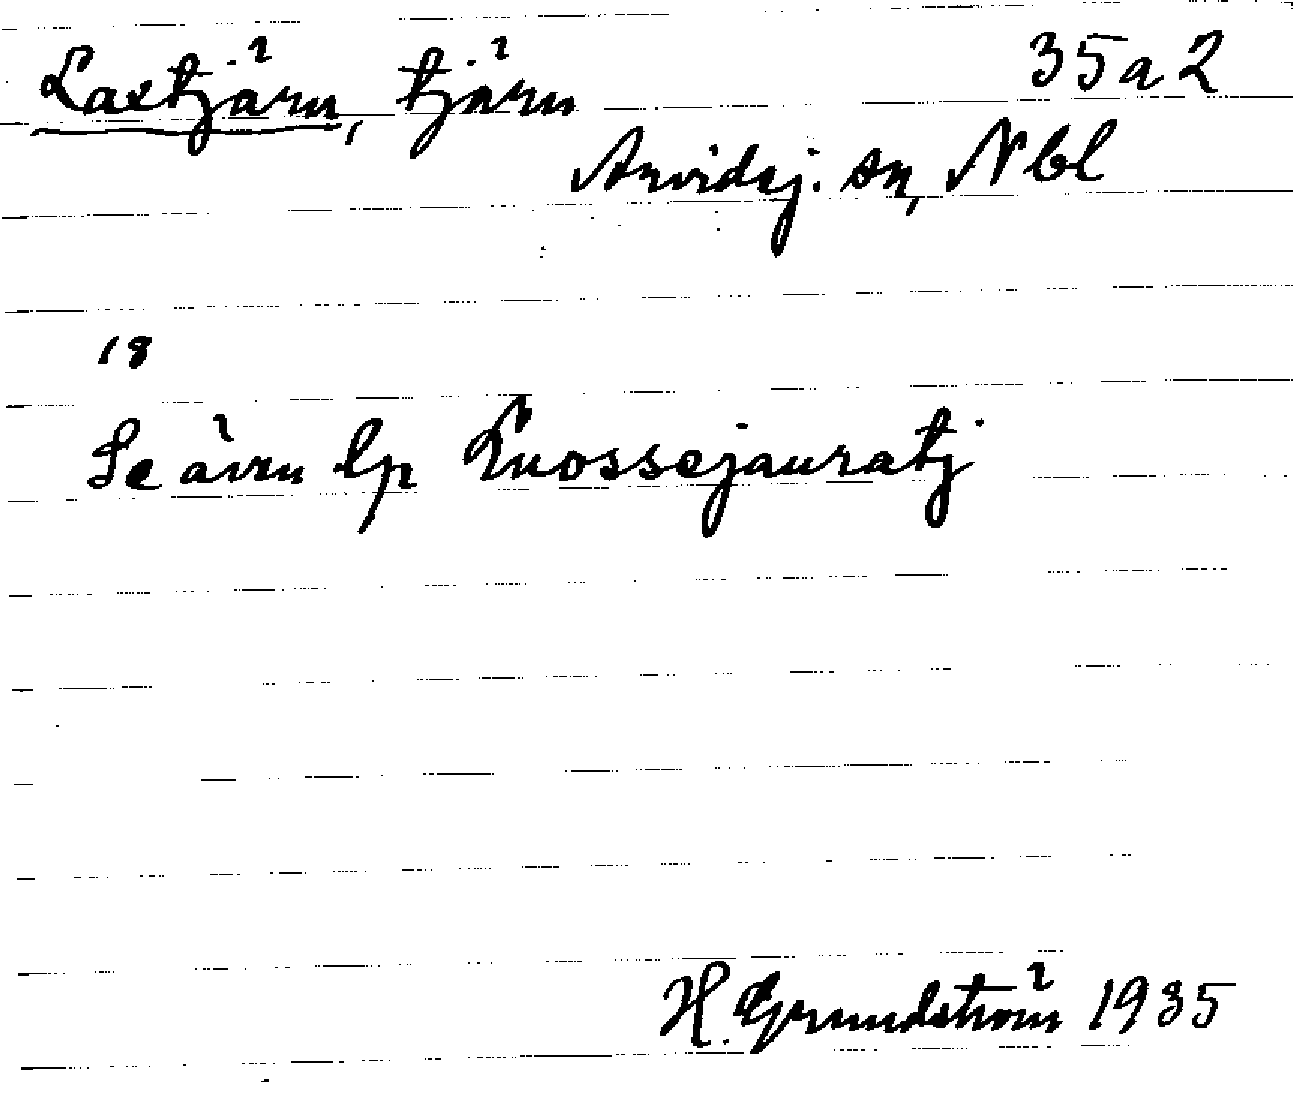 Laxtjärn, tjärn 35a2
Arvidsj. sn, Nbl
18
Se även lp Luossejauratj
H. Grundström 1935